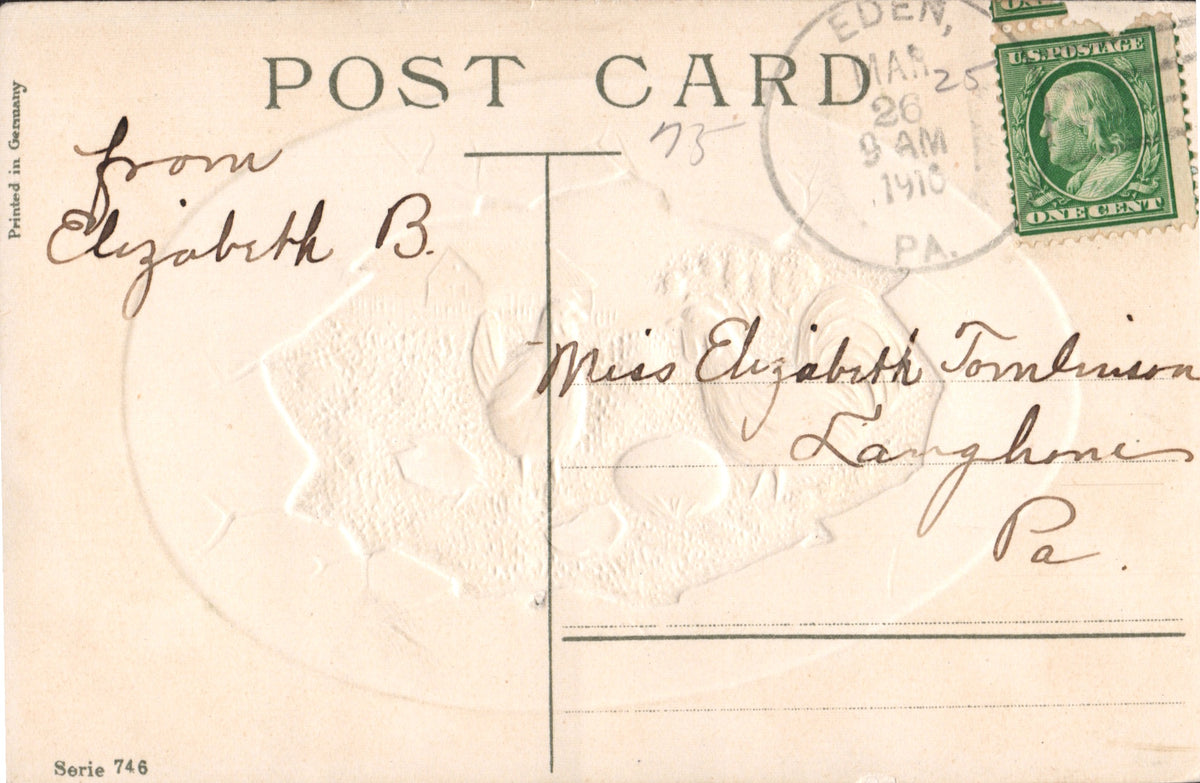 POST CARD
Printed in Germany
from
Elizabeth B.
75
EDEN,
MAR
25
26
9 AM
1910
PA.
U.S. POSTAGE
ONE CENT
Miss Elizabeth Tomlinson
Langhorne
Pa.
Serie 746